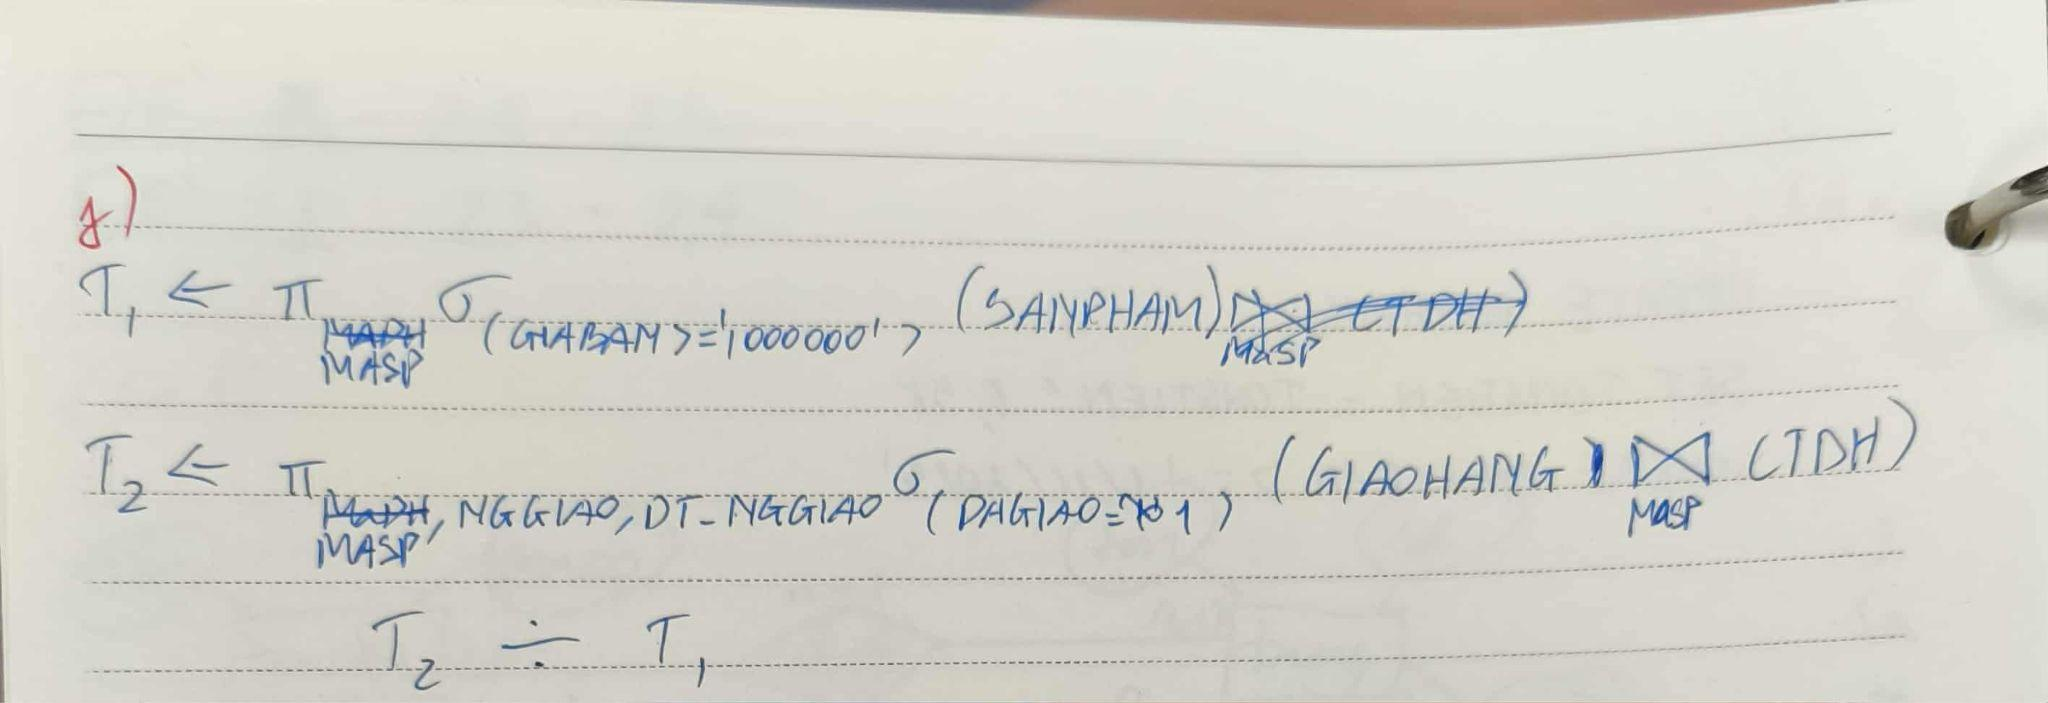 g)
T₁ ← π MASP σ (GIABAN >= '1000000') (SANPHAM)
T₂ ← π MASP, NGGIAO, DT_NGGIAO σ (DAGIAO = 1) (GIAOHANG ⋈ MASP CTDH)
T₂ ÷ T₁